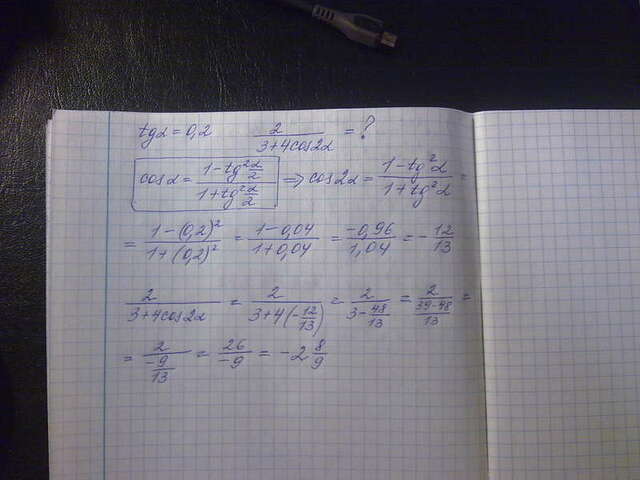 tgα = 0,2   2/(3+4cos2α) = ?
cosα = (1-tg²α/2)/(1+tg²α/2) ⇒ cos2α = (1-tg²α)/(1+tg²α) =
= (1-(0,2)²)/(1+(0,2)²) = (1-0,04)/(1+0,04) = (-0,96)/(1,04) = -12/13
2/(3+4cos2α) = 2/(3+4(-12/13)) = 2/(3-48/13) = 2/((39-48)/13) =
= 2/(-9/13) = 26/(-9) = -2 8/9